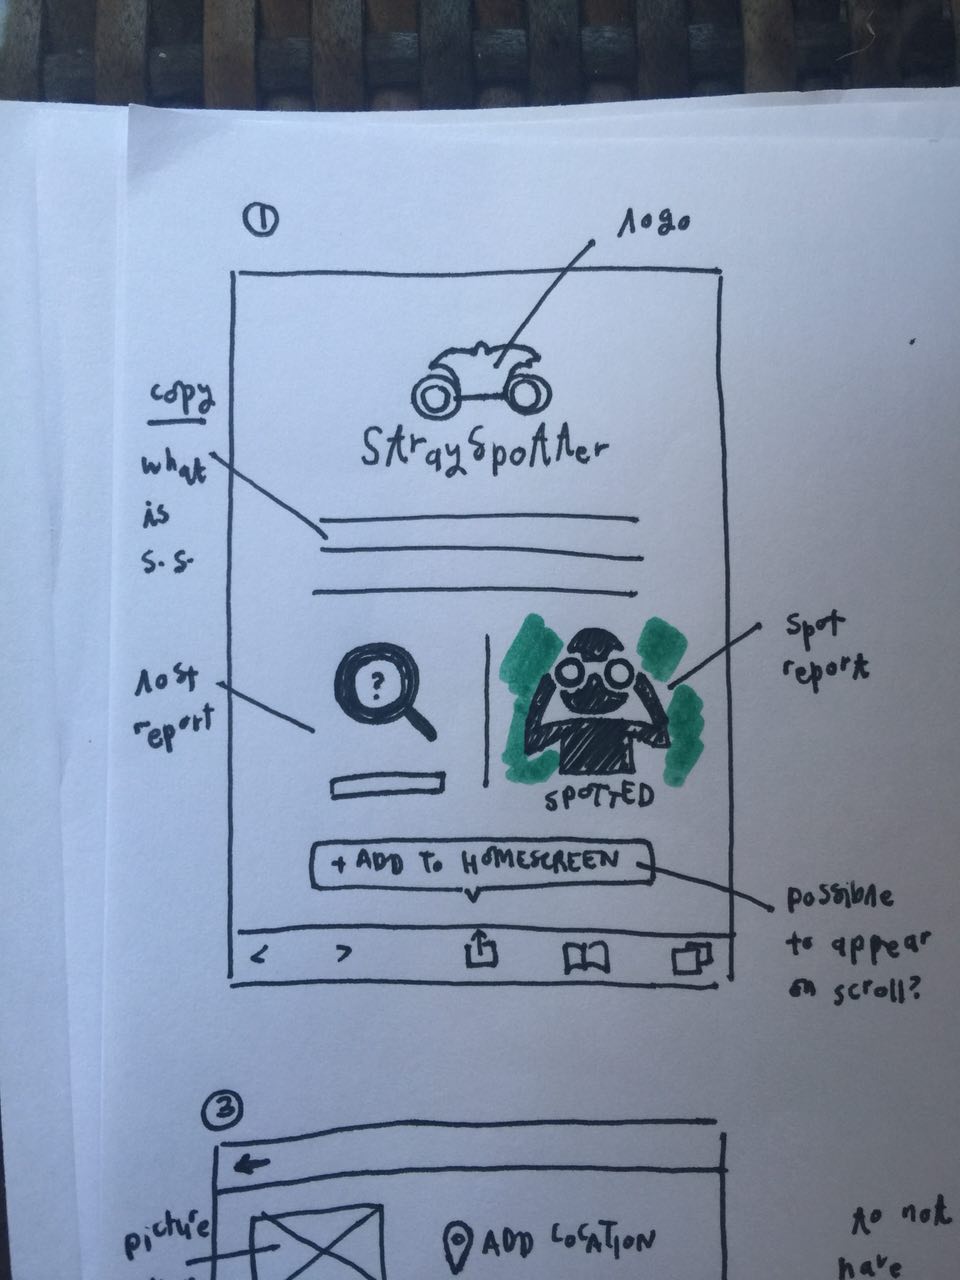 1
logo
copy
what
is
s.s.
StraySpotter
lost
report
?
spot
report
SPOTTED
+ ADD TO HOMESCREEN
possible
to appear
on scroll?
< >
3
←
picture
ADD LOCATION
to not
have